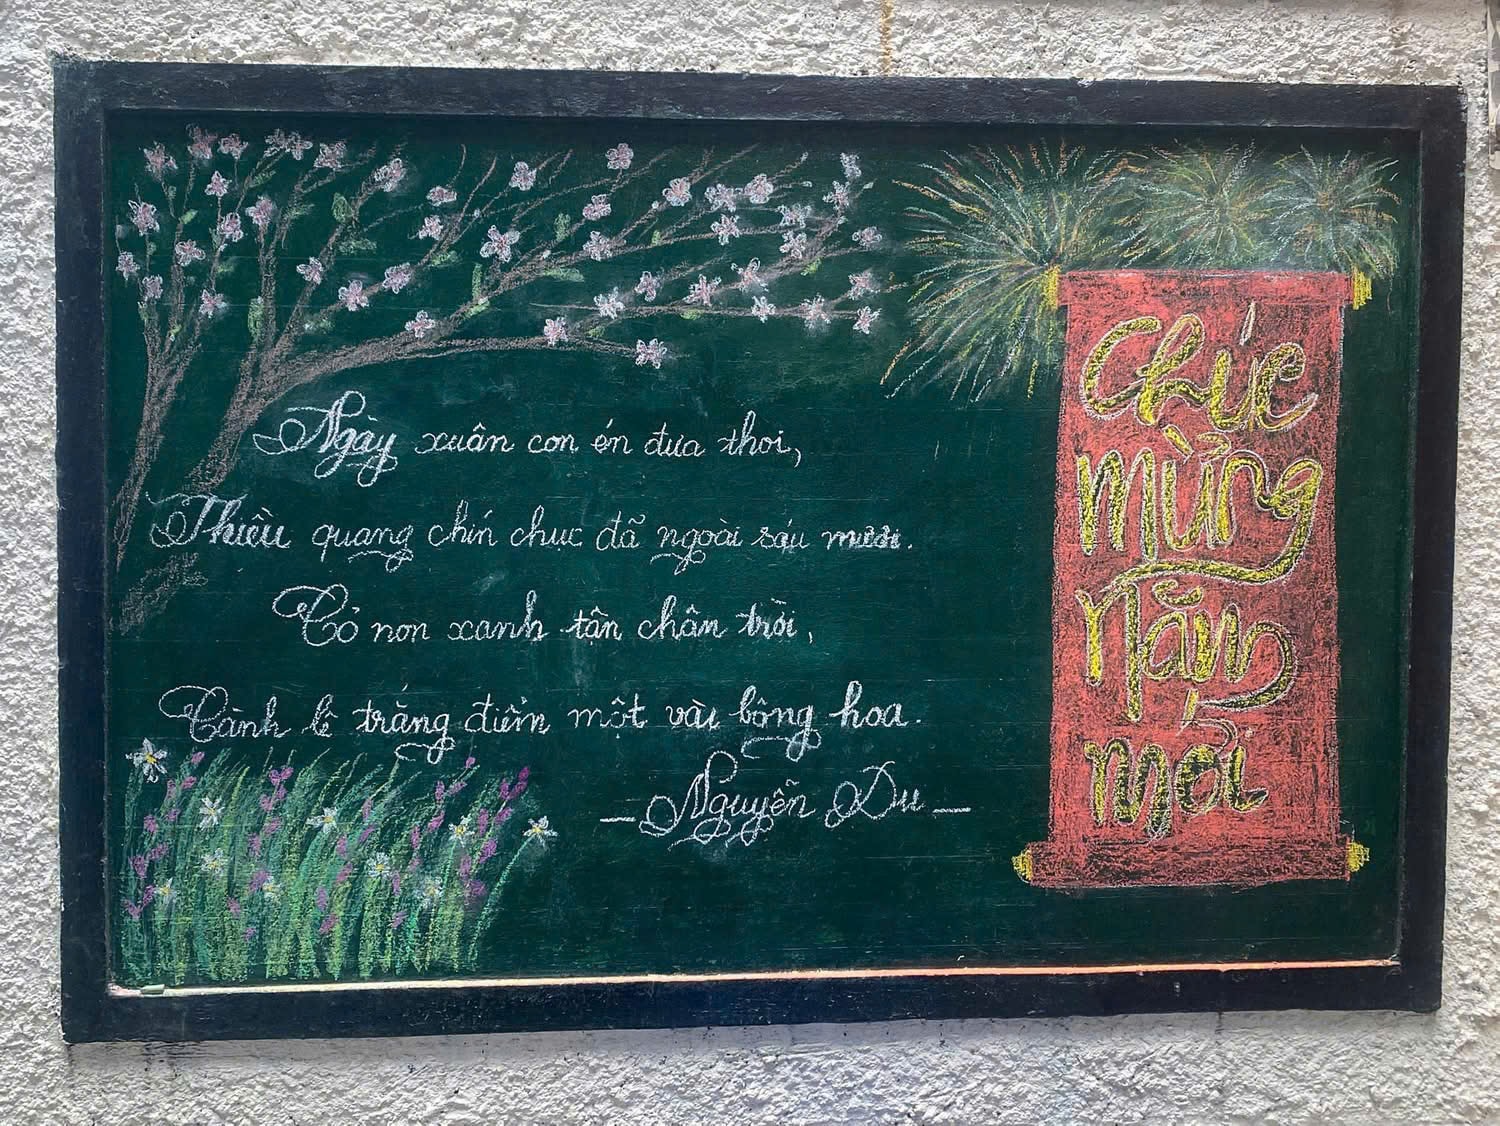 Ngày xuân con én đưa thoi,
Thiều quang chín chục đã ngoài sáu mươi.
Cỏ non xanh tận chân trời,
Cành lê trắng điểm một vài bông hoa.
- Nguyễn Du -
Chúc
mừng
năm
mới